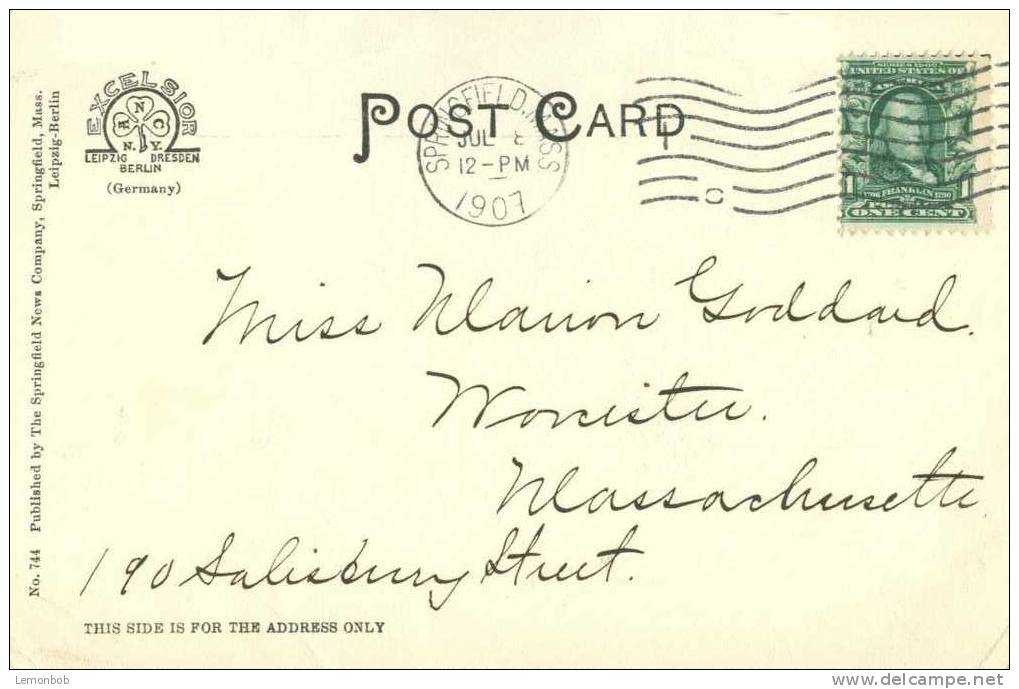 EXCELSIOR
A N C
N.Y.
LEIPZIG DRESDEN
BERLIN
(Germany)
POST CARD
SPRINGFIELD, MASS
JUL 8
12-PM
1907
SERIES 1902
UNITED STATES OF
AMERICA
1 1706 FRANKLIN 1790 1
ONE CENT
Miss Marion Goddard.
Worcester.
Massachusetts.
190 Salisbury Street.
THIS SIDE IS FOR THE ADDRESS ONLY
No. 744 Published by The Springfield News Company, Springfield, Mass.
Leipzig-Berlin
Lemonbob
www.delcampe.net